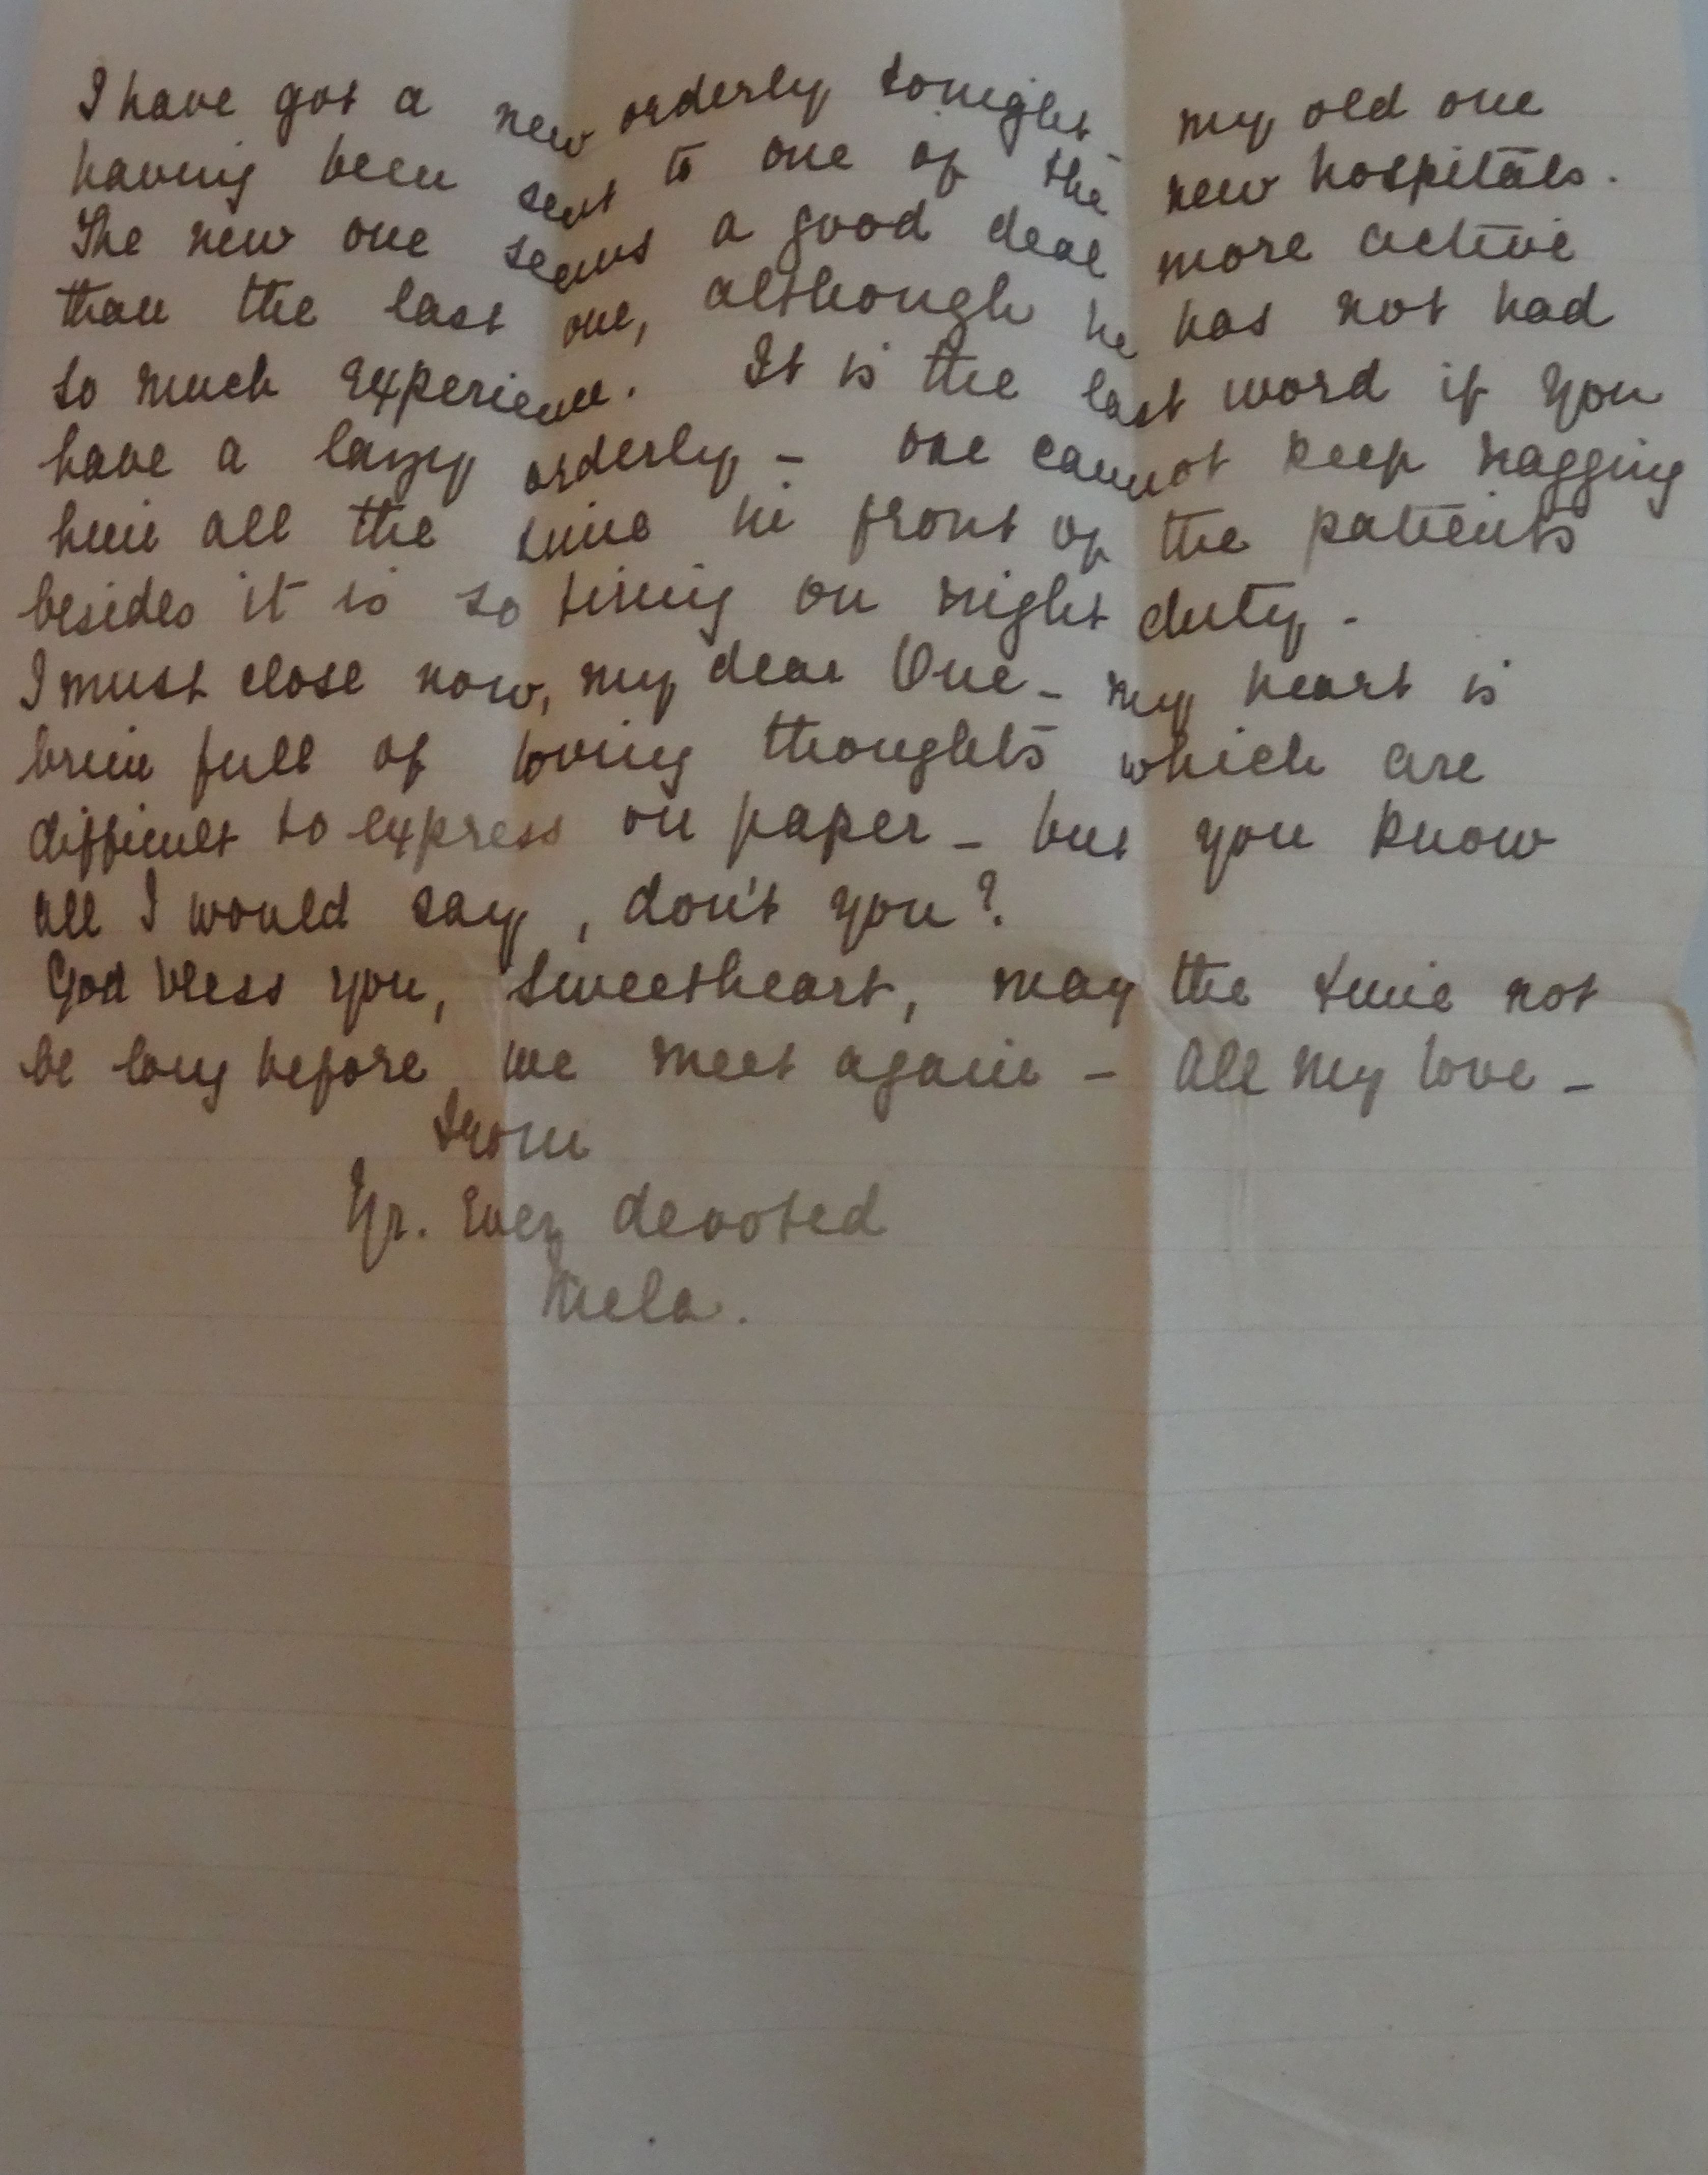 I have got a new orderly tonight - my old one
having been sent to one of the new hospitals.
The new one seems a good deal more active
than the last one, although he has not had
so much experience. It is the last word if you
have a lazy orderly - one cannot keep nagging
him all the time in front of the patients
besides it is so tiring on night duty -
I must close now, my dear One - my heart is
brim full of loving thoughts which are
difficult to express on paper - but you know
all I would say, don't you?
God bless you, Sweetheart, may the time not
be long before we meet again - All my love -
from
Yr. Ever devoted